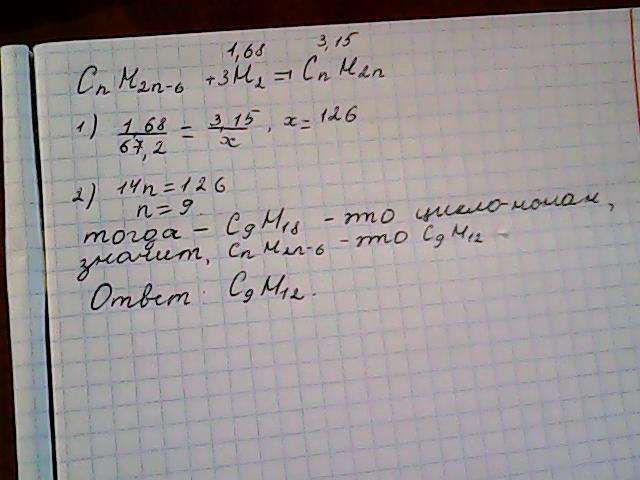 1,68 3,15
CnH2n-6 + 3H2 = CnH2n
1) 1,68/67,2 = 3,15/x, x = 126
2) 14n = 126
n = 9
тогда - C9H18 - это цикло-нонан,
значит, CnH2n-6 - это C9H12
Ответ: C9H12.